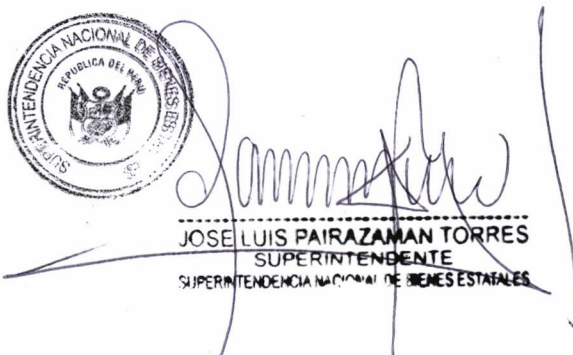 SUPERINTENDENCIA NACIONAL DE BIENES
REPUBLICA DEL PERU
JOSE LUIS PAIRAZAMAN TORRES
SUPERINTENDENTE
SUPERINTENDENCIA NACIONAL DE BIENES ESTATALES